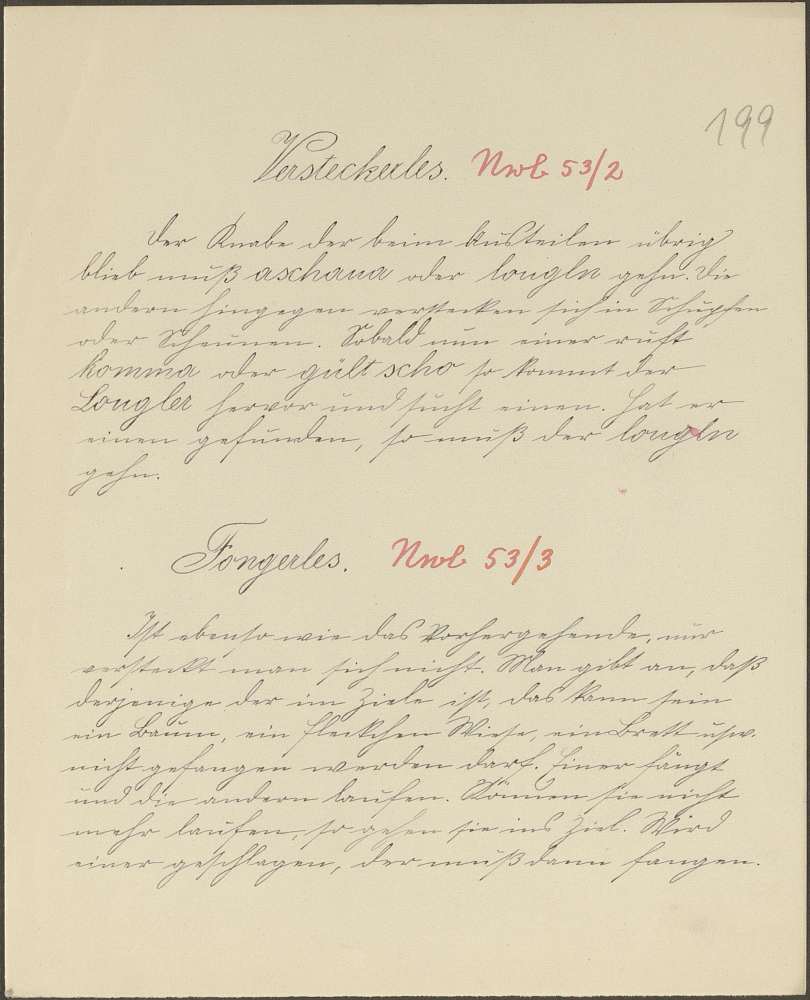 199
Versteckerles. Nwb 53/2
Der Knabe der beim Austeilen übrig
blieb muß aschaua oder lougln gehn. Die
andern hingegen verstecken sich in Schupfen
oder Scheunen. Sobald nun einer ruft
komma oder gült scho so kommt der
Lougler hervor und sucht einen. Hat er
einen gefunden, so muß der lougln
gehn.
Fongerles. Nwb 53/3
Ist ebenso wie das Vorhergehende, nur
versteckt man sich nicht. Man gibt an, daß
derjenige der im Ziele ist, das kann sein
ein Baum, ein Fleckchen Wiese, ein Brett usw.
nicht gefangen werden darf. Einer fängt
und die andern laufen. Können sie nicht
mehr laufen, so gehen sie ins Ziel. Wird
einer geschlagen, der muß dann fangen.